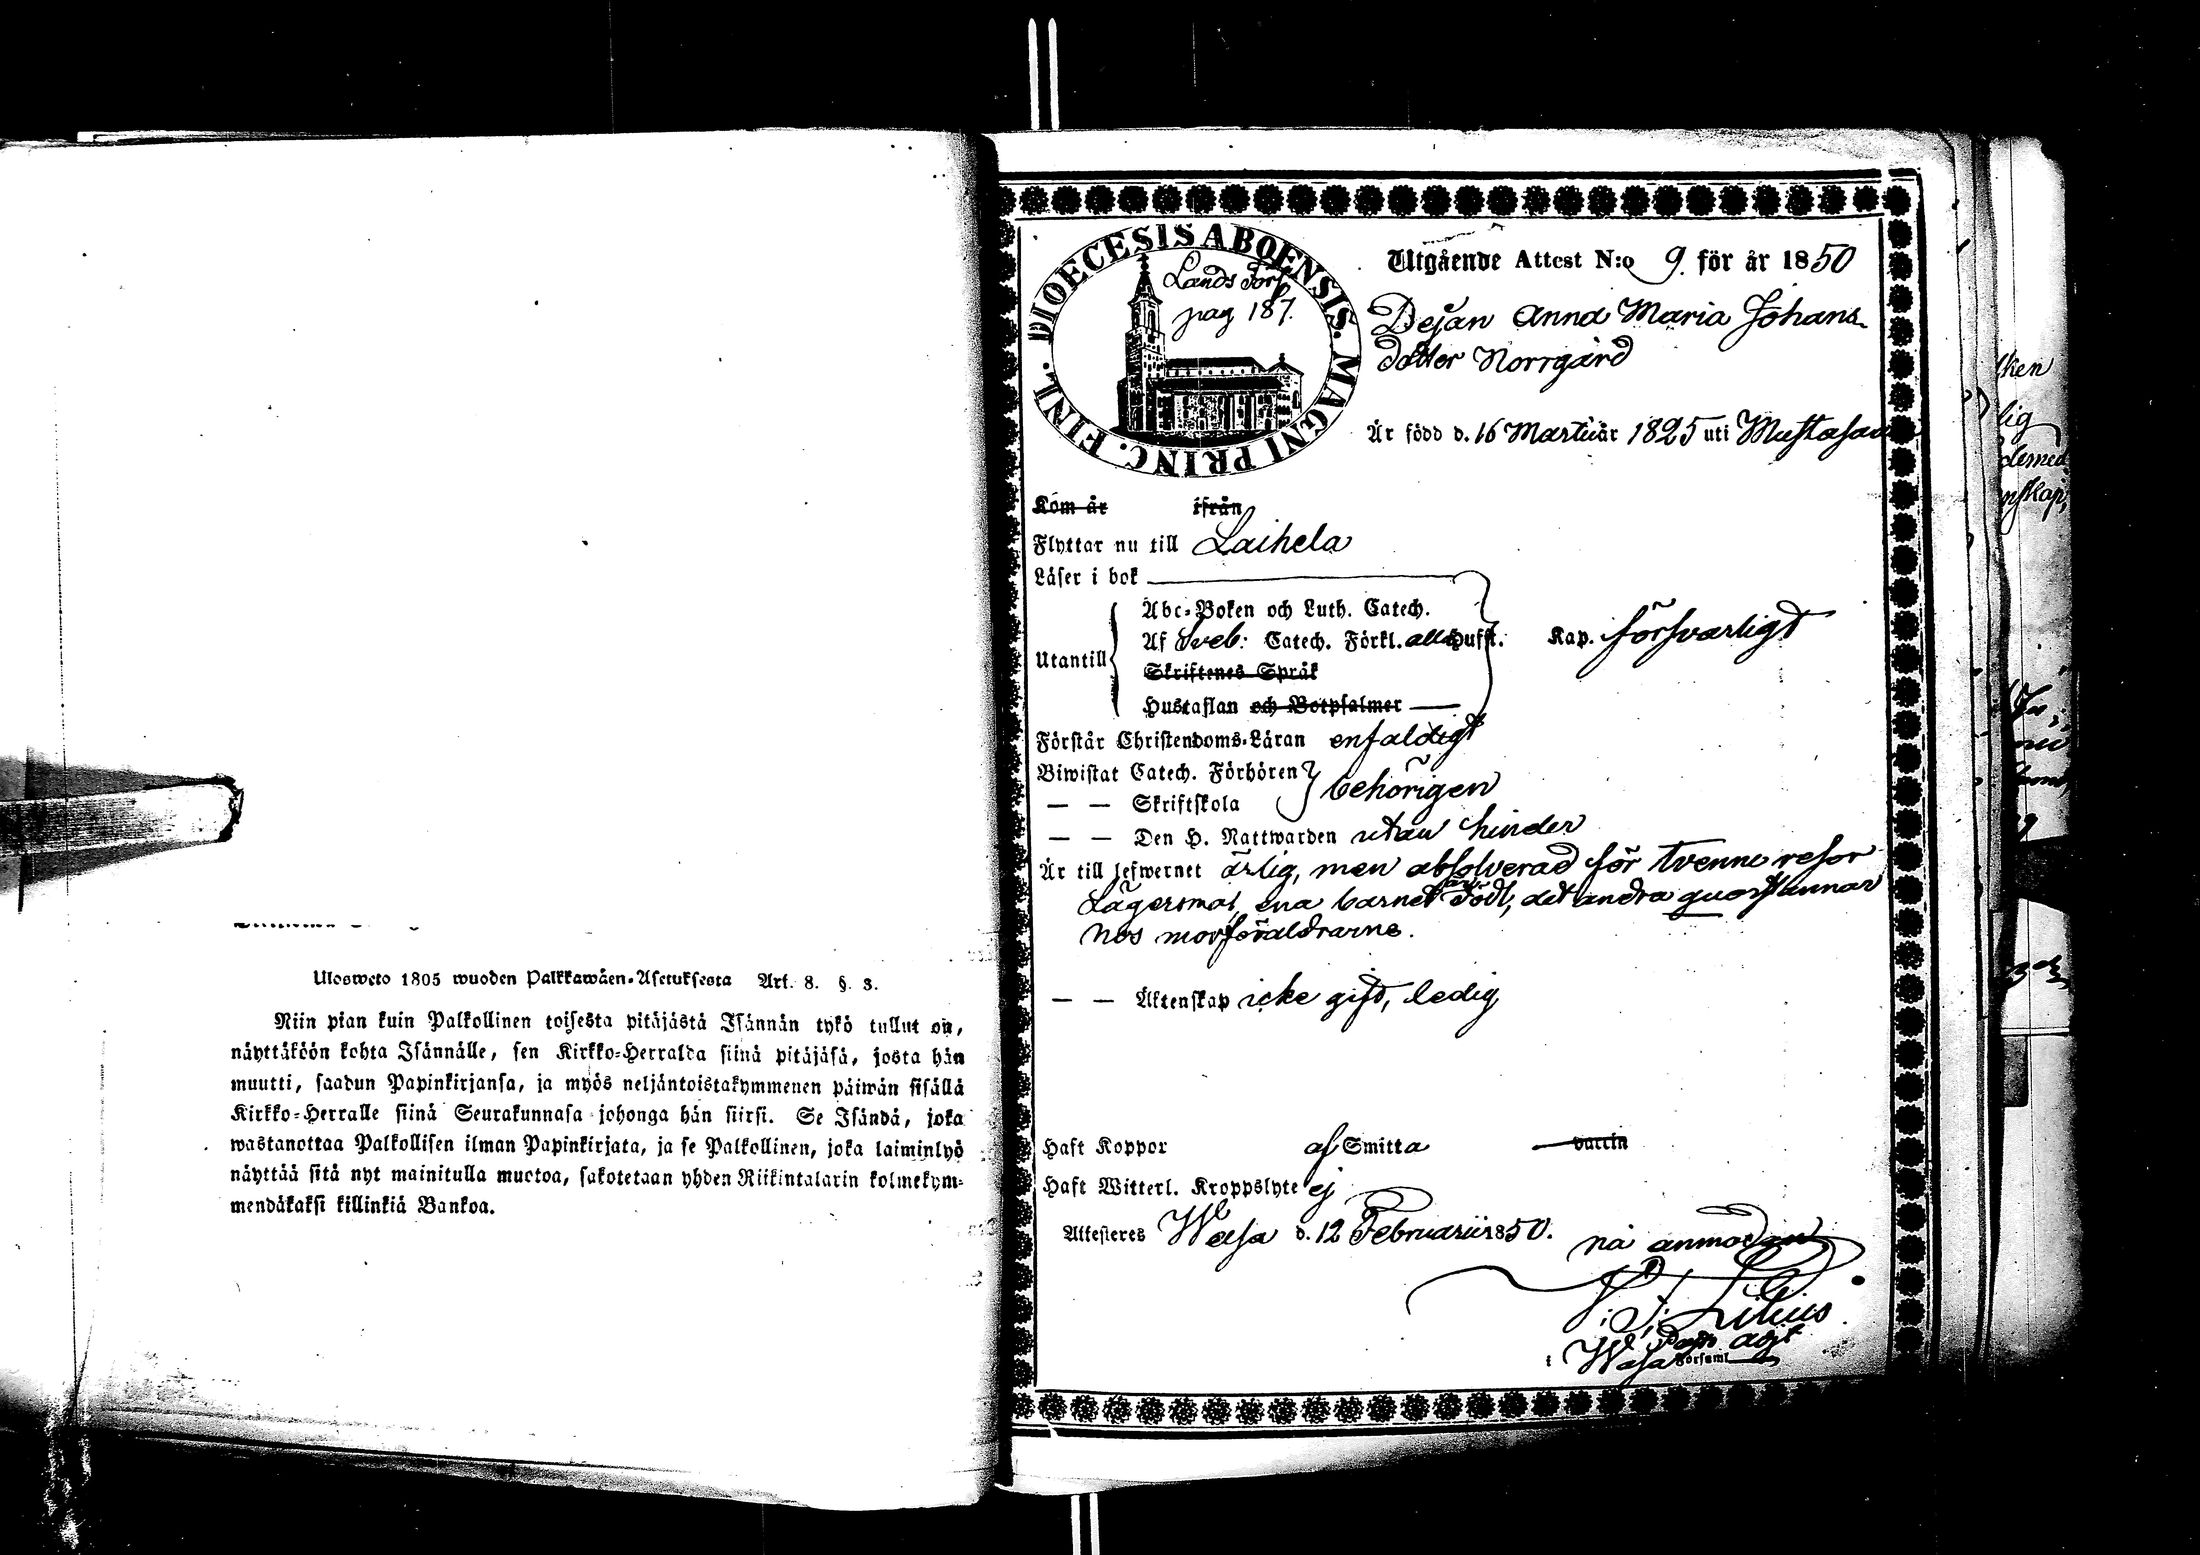 Ulosweto 1805 wuoden Palkkawäen-Asetuksesta Art. 8. §. 3.
Niin pian kuin Palkollinen toisesta pitäjästä Isännän tykö tullut on,
näyttäköön kohta Isännälle, sen Kirkko-Herralda siinä pitäjäsä, josta hän
muutti, saadun Papinkirjansa, ja myös neljäntoistakymmenen päiwän sisällä
Kirkko-Herralle siinä Seurakunnasa johonga hän siirsi. Se Isändä, joka
wastanottaa Palkollisen ilman Papinkirjata, ja se Palkollinen, joka laiminlyö
näyttää sitä nyt mainitulla muotoa, sakotetaan yhden Riikintalarin kolmekym-
mendäkaksi killinkiä Bankoa.
DIOECESIS ABOENSIS. MAGNI PRINC. FINL.
Lands Förs
pag 187.
Utgående Attest N:o 9. för år 1850
Dejan Anna Maria Johans-
dotter Norrgård
Är född d. 16 Martii år 1825 uti Mustasaari
Kom år ifrån
Flyttar nu till Laihela
Läser i bok
Utantill
Abc-Boken och Luth. Catech.
Af Sveb: Catech. Förkl. alla Hufst. Kap. försvarligt
Skriftenes Språk
Hustaflan och Botpsalmer
Förstår Christendoms-Läran enfaldigt
Biwistat Catech. Förhören
— — Skriftskola behörigen
— — Den H. Nattwarden utan hinder
Är till lefwernet ärlig, men absolverad för tvenne resor
Lägersmål, ena barnet är dödt, det andra quarstannar
hos morföräldrarne.
— — Äktenskap icke gift, ledig
Haft Koppor af Smitta vaccin
Haft Witterl. Kroppslyte ej
Attesteres Wasa d. 12 Februarii 1850.
på anmodan
Lilius
i Wasa Församl